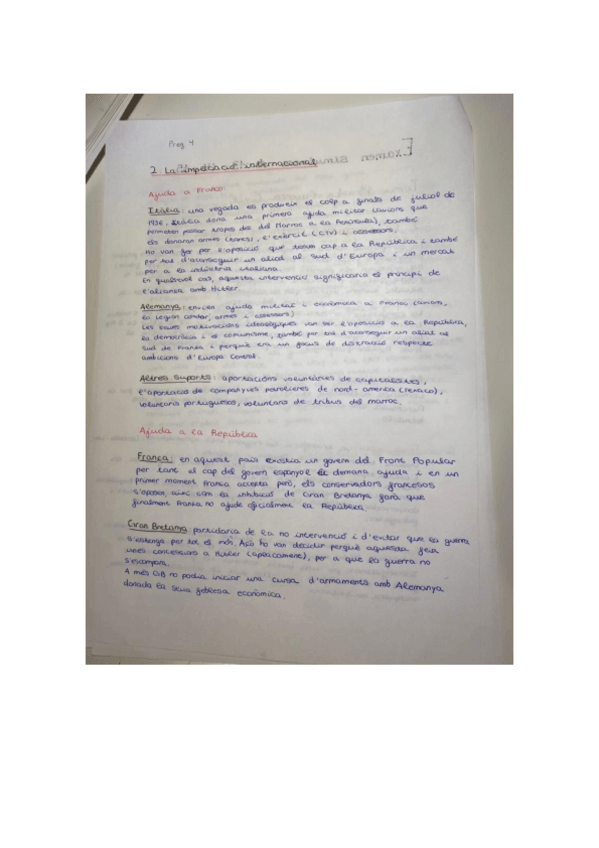 Preg 4
2. La implicació internacional
Ajuda a Franco:
Itàlia: una vegada es produeix el colp a finals de juliol de
1936, Itàlia dona una primera ajuda militar (avions que
permeten passar tropes des del Marroc a la Península), també
els donaran armes (totes), l'exèrcit (CTV) i assessors.
Ho van fer per l'oposició que tenien cap a la República i també
per tal d'aconseguir un aliat al sud d'Europa i un mercat
per a la indústria italiana.
En qualsevol cas, aquesta intervenció significaria el principi de
l'aliança amb Hitler.
Alemanya: envien ajuda militar i econòmica a Franco (avions,
la Legión Cóndor, armes i assessors)
Les seues motivacions ideològiques van ser l'oposició a la República,
la democràcia i el comunisme, també per tal d'aconseguir un aliat al
sud de França i perquè era un focus de distracció respecte
ambicions d'Europa Central.
Altres suports: aportacions voluntàries de capitalistes,
l'aportació de companyies petrolieres de nord-amèrica (Texaco),
voluntaris portuguesos, voluntaris de tribus del Marroc.
Ajuda a la República
França: en aquest país existia un govern del Front Popular
per tant el cap del govern espanyol li demana ajuda i en un
primer moment França accepta però, els conservadors francesos
s'oposen, així com la inhibició de Gran Bretanya farà que
finalment França no ajude oficialment la República.
Gran Bretanya: partidària de la no intervenció i d'evitar que la guerra
s'estenga per tot el món. Açò ho van decidir perquè aquesta feia
unes concessions a Hitler (apaciament), per a que la guerra no
s'escampara.
A més GB no podia iniciar una cursa d'armaments amb Alemanya
donada la seua feblesa econòmica.